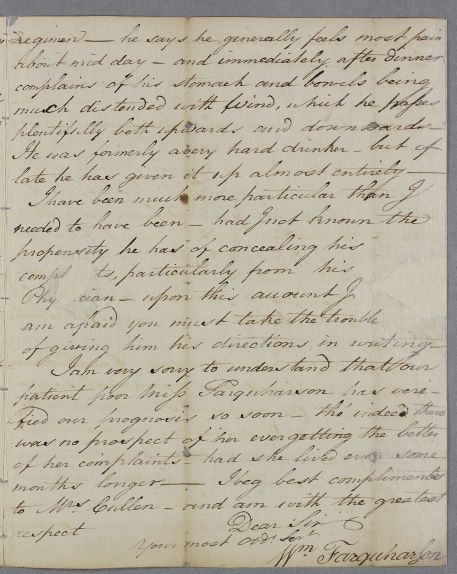 regimen — he says he generally feels most pain
about mid day — and immediately after dinner
complains of his stomach and bowels being
much distended with Wind, which he passes
plentifully both upwards and downwards —
He was formerly a very hard drinker — but of
late he has given it up almost entirely —
I have been much more particular than I
needed to have been — had I not known the
propensity he has of concealing his
compl ts, particularly from his
Phy cian — upon this account I
am afraid you must take the trouble
of giving him his directions in writing —
I am very sorry to understand that our
patient poor Miss Farquharson has vere-
fied our prognosis so soon — tho indeed there
was no prospect of her ever getting the better
of her complaints — had she lived even some
months longer — I beg best compliments
to Mrs Cullen — and am with the greatest
respect Dear Sir
Your most Obdt Sert
Wm Farquharson